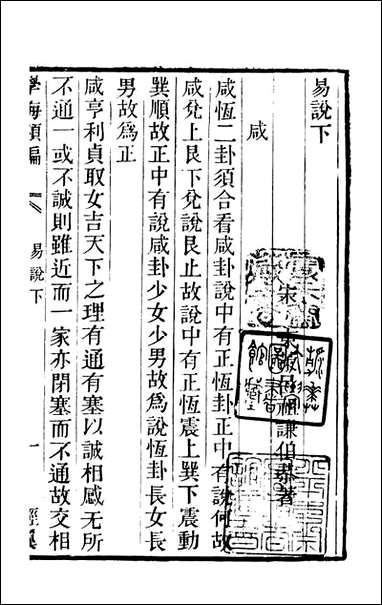 易說下
宋 東萊呂祖謙伯恭著
咸
咸恆二卦須合看咸卦說中有正恆卦正中有說何故
咸兌上艮下兌說艮止故說中有正恆震上巽下震動
巽順故正中有說咸卦少女少男故為說恆卦長女長
男故為正
咸亨利貞取女吉天下之理有通有塞以誠相感无所
不通一或不誠則雖近而一家亦閉塞而不通故交相
學海類編
易說下
一
經翼